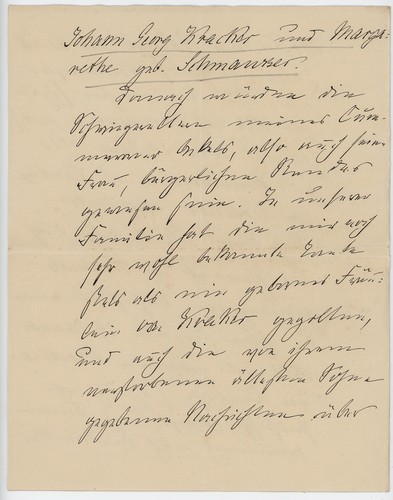 Johann Georg Kracker und Marga-
rethe geb. Schmauser.
Danach würden die
Schwiegereltern meines
Onkels, also auch seine
Frau, bürgerlichen Standes
gewesen sein. In unserer
Familie hat die mir noch
sehr wohl bekannte Tante
stets als ein gebornes Fräu-
lein von Kracker gegolten,
und auch die von ihrem
verstorbenen ältesten Sohne
gegebenen Nachrichten über